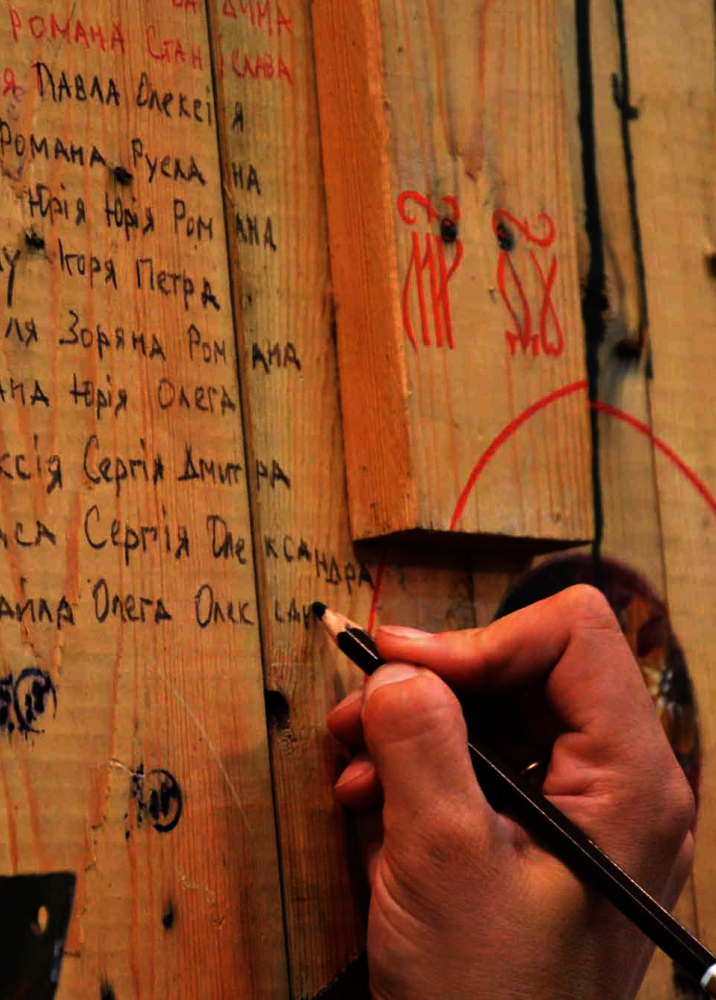 ДИМА
РОМАНА СТАНІСЛАВА
Я ПАВЛА ОЛЕКСІЯ
РОМАНА РУСЛАНА
ЮРІЯ ЮРІЯ РОМАНА
ІГОРЯ ПЕТРА
ЛЯ ЗОРЯНА РОМАНА
АНА ЮРІЯ ОЛЕГА
КСІЯ СЕРГІЯ ДМИТРА
АСА СЕРГІЯ ОЛЕКСАНДРА
АЙЛА ОЛЕГА ОЛЕКСАН